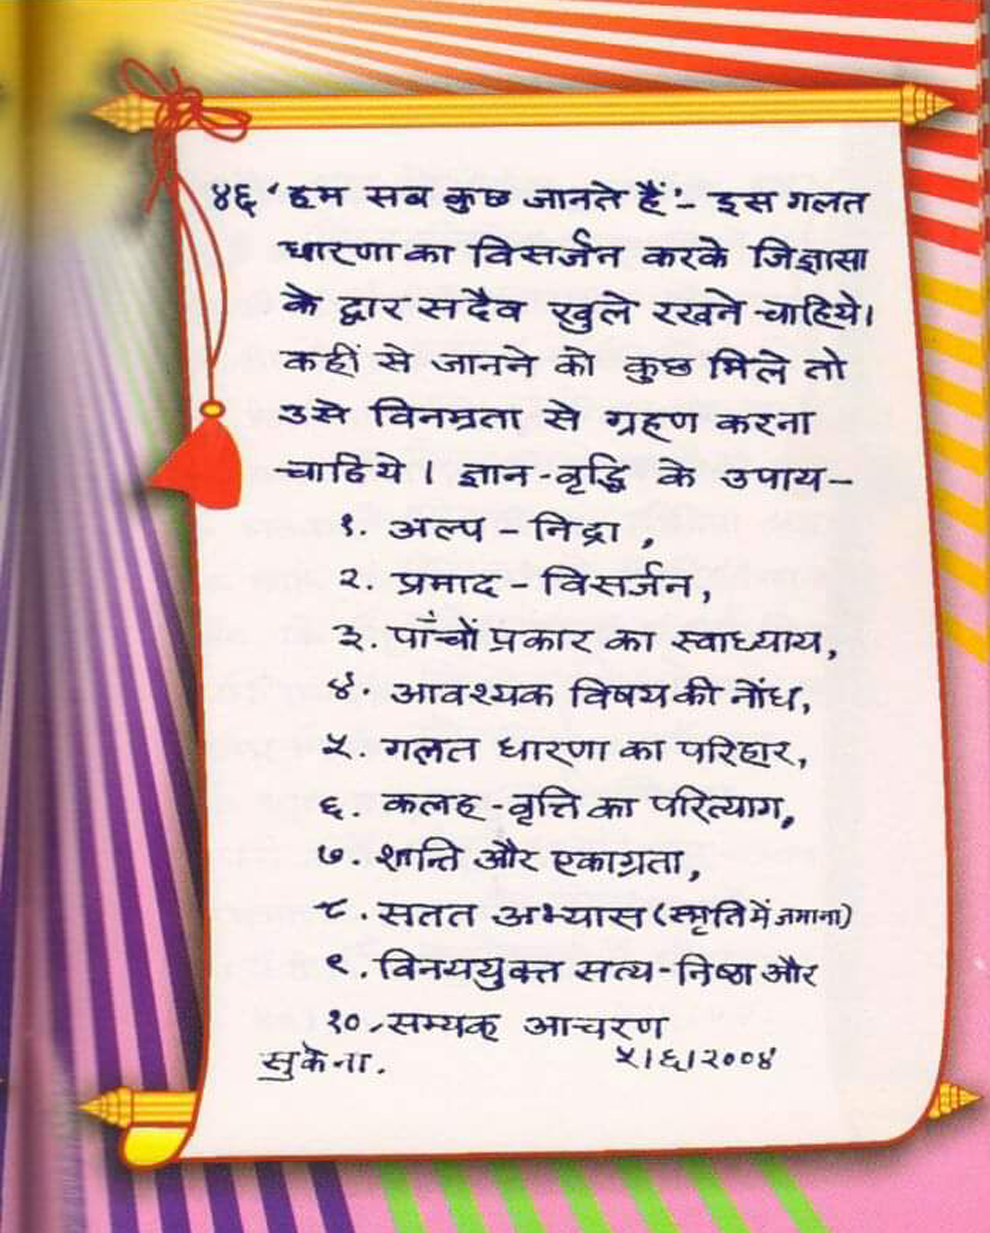 ४६ 'हम सब कुछ जानते हैं'- इस गलत
धारणा का विसर्जन करके जिज्ञासा
के द्वार सदैव खुले रखने चाहिये।
कहीं से जानने को कुछ मिले तो
उसे विनम्रता से ग्रहण करना
चाहिये । ज्ञान-वृद्धि के उपाय-
१. अल्प - निद्रा ,
२. प्रमाद - विसर्जन,
३. पाँचों प्रकार का स्वाध्याय,
४. आवश्यक विषय की नोंध,
५. गलत धारणा का परिहार,
६. कलह - वृत्ति का परित्याग,
७. शान्ति और एकाग्रता,
८. सतत अभ्यास (स्मृति में जमाना)
९. विनययुक्त सत्य-निष्ठा और
१०. सम्यक् आचरण
सुकेना. ५।६।२००४